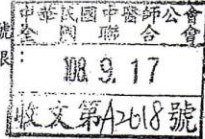 中華民國中醫師公會
全國聯合會
108. 9. 17
收文第A2618號
號
限：